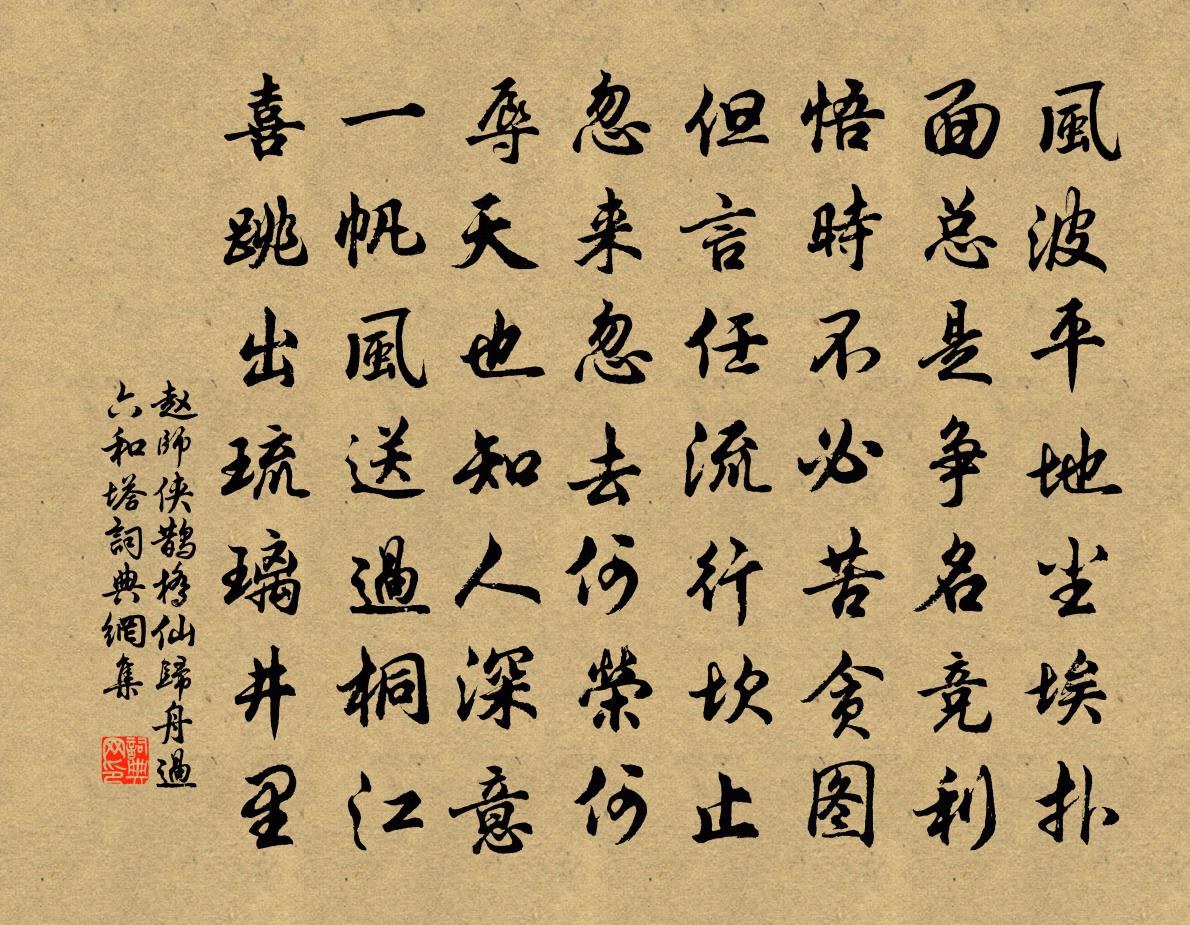 風波平地尘埃扑
面总是争名竞利
悟時不必苦贪图
但言任流行坎止
忽来忽去何榮何
辱天也知人深意
一帆風送過桐江
喜跳出琉璃井里
赵師侠鹊橋仙歸舟過
六和塔詞典網集
詞典
网印